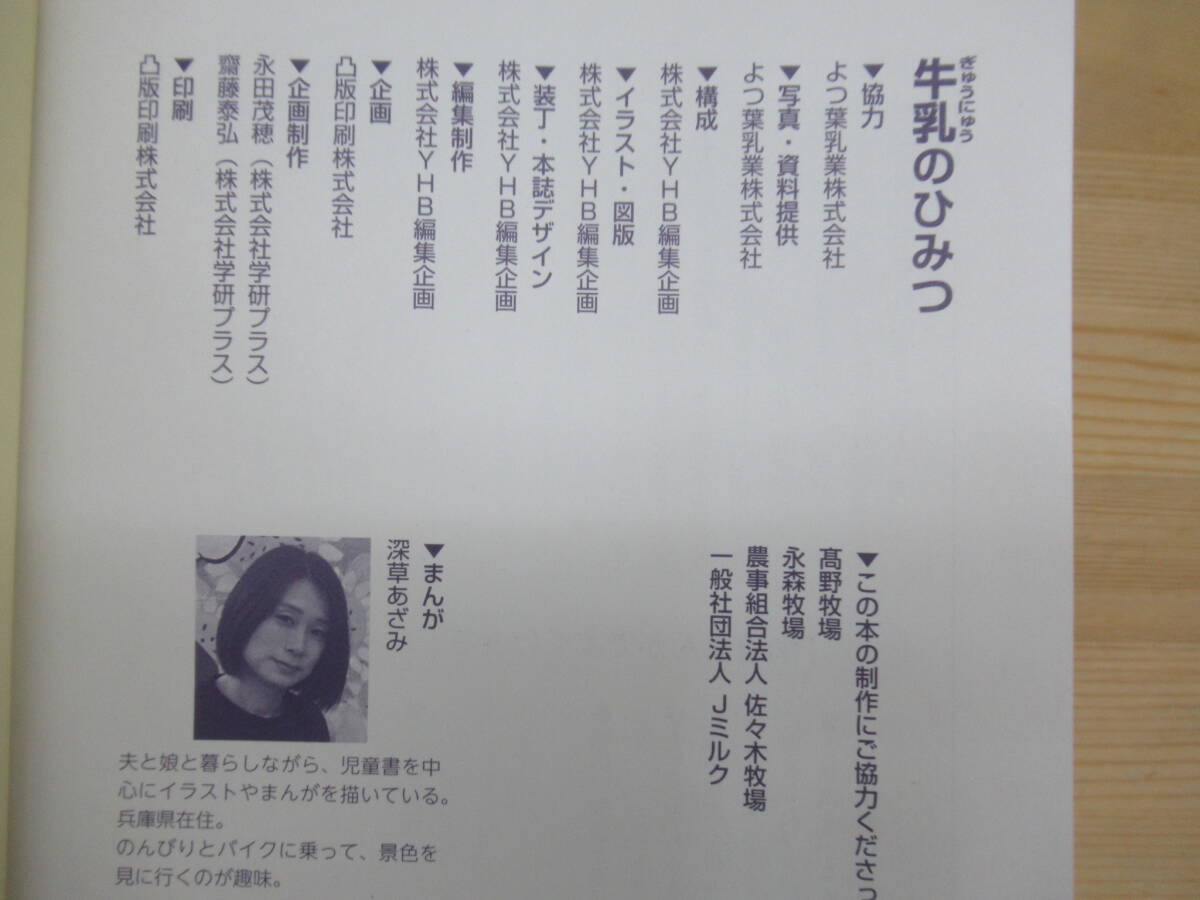 ぎゅうにゅう
牛乳のひみつ
▼協力
よつ葉乳業株式会社
▼写真・資料提供
よつ葉乳業株式会社
▼構成
株式会社YHB編集企画
▼イラスト・図版
株式会社YHB編集企画
▼装丁・本誌デザイン
株式会社YHB編集企画
▼編集制作
株式会社YHB編集企画
▼企画
凸版印刷株式会社
▼企画制作
永田茂穂（株式会社学研プラス）
齋藤泰弘（株式会社学研プラス）
▼印刷
凸版印刷株式会社
▼この本の制作にご協力くださっ
髙野牧場
永森牧場
農事組合法人 佐々木牧場
一般社団法人 Jミルク
▼まんが
深草あざみ
夫と娘と暮らしながら、児童書を中
心にイラストやまんがを描いている。
兵庫県在住。
のんびりとバイクに乗って、景色を
見に行くのが趣味。